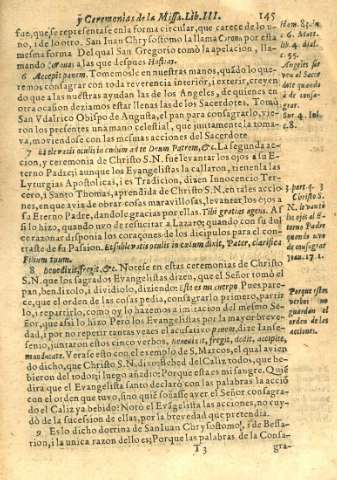 y Ceremonias de la Missa. Lib. III. 145
fue, que se representase en la forma circular, que carece de lo u-
no, i de lo otro. San Iuan Chrysostomo la llama Corona por esta
mesma forma. Del qual San Gregorio tomò la apelacion, lla-
mando Coronas a las que despues Hostias.
6 Accepit panem. Tomemosle en nuestras manos, quãdo lo que-
remos consagrar con toda reverencia interior, i grande, creyen-
do que a las nuestras ayudan las de los Angeles, de quienes en
otra ocasion deziamos estar llenas las de los Sacerdotes. Tomò
San Vdalrico Obispo de Augusta, el pan para consagrarlo, vie-
ron los presentes una mano celestial, que juntamente la toma-
va, moviendose con las mesmas acciones del Sacerdote.
7 Et elevatis oculis in cœlum ad te Deum Patrem, &c. La segunda ac-
cion, y ceremonia de Christo S.N. fue levantar los ojos a su E-
terno Padre; i aunque los Evangelistas la callaron, tienenla las
Lyturgias Apostolicas, i es Tradicion, dizen Innocencio Ter-
cero, i Santo Thomas, aprendida de Christo S.N. en tales accio-
nes, en que avia de obrar cosas maravillosas, levantar los ojos a
su Eterno Padre, dandole gracias por ellas. Tibi gratias agens. Assi
lo hizo, quando uvo de resucitar a Lazaro; quando con su di-
vi razonar disponia los coraçones de los discipulos para el con-
traste de su Passion. Et sublevatis oculis in cœlum dixit, Pater, clarifica
Filium tuum.
8 Benedixit, fregit, &c. Notese en estas ceremonias de Christo
S.N. que los sagrados Evangelistas dizen, que el Señor tomò el
pan, bendixolo, i dividiolo, diziendo: Este es mi cuerpo. Pues pare-
ce, que el orden de las cosas pedia, consagrarlo primero, partir
lo, i repartirlo, como oy lo hazemos a imitacion del mesmo Se-
ñor, que assi lo hizo. Pero los Evangelistas por la mayor breve-
dad, i por no repetir tantas vezes el acusativo panem, dize Ianse-
nio, juntaron estos cinco verbos, benedixit, fregit, dedit, accipite,
manducate. Verase esto con el exemplo de S. Marcos, el qual avien
do dicho, que Christo S.N. dixo: Bebed del Caliz todos, que be-
bieron del todos; i luego añadio: Porque esta es mi sangre. Quiẽ
dirà que el Evangelista santo declarò con las palabras la acciõ
con el orden que tuvo, sino quiẽ soñasse aver el Señor consagra-
do el Caliz ya bebido? Notò el Evangelista las acciones, no cuy-
dò de la sucession de ellas, por la brevedad que pretendia.
9 Es lo dicho dotrina de San Iuan Chrysostomo, i de Bessa-
rion, i la unica razon dello es; Porque las palabras de la Consa-
T 3 gra-
Angeles sir
ven al Sacer
dote quando
à de consa-
grar.
3. part. q. 83
Christo S.
N. levantò
los ojos al E-
terno Padre
quando uvo
de consagrar
Ioan. 17. 1.
Porque estos
verbos no
guardan el
orden de las
acciones.